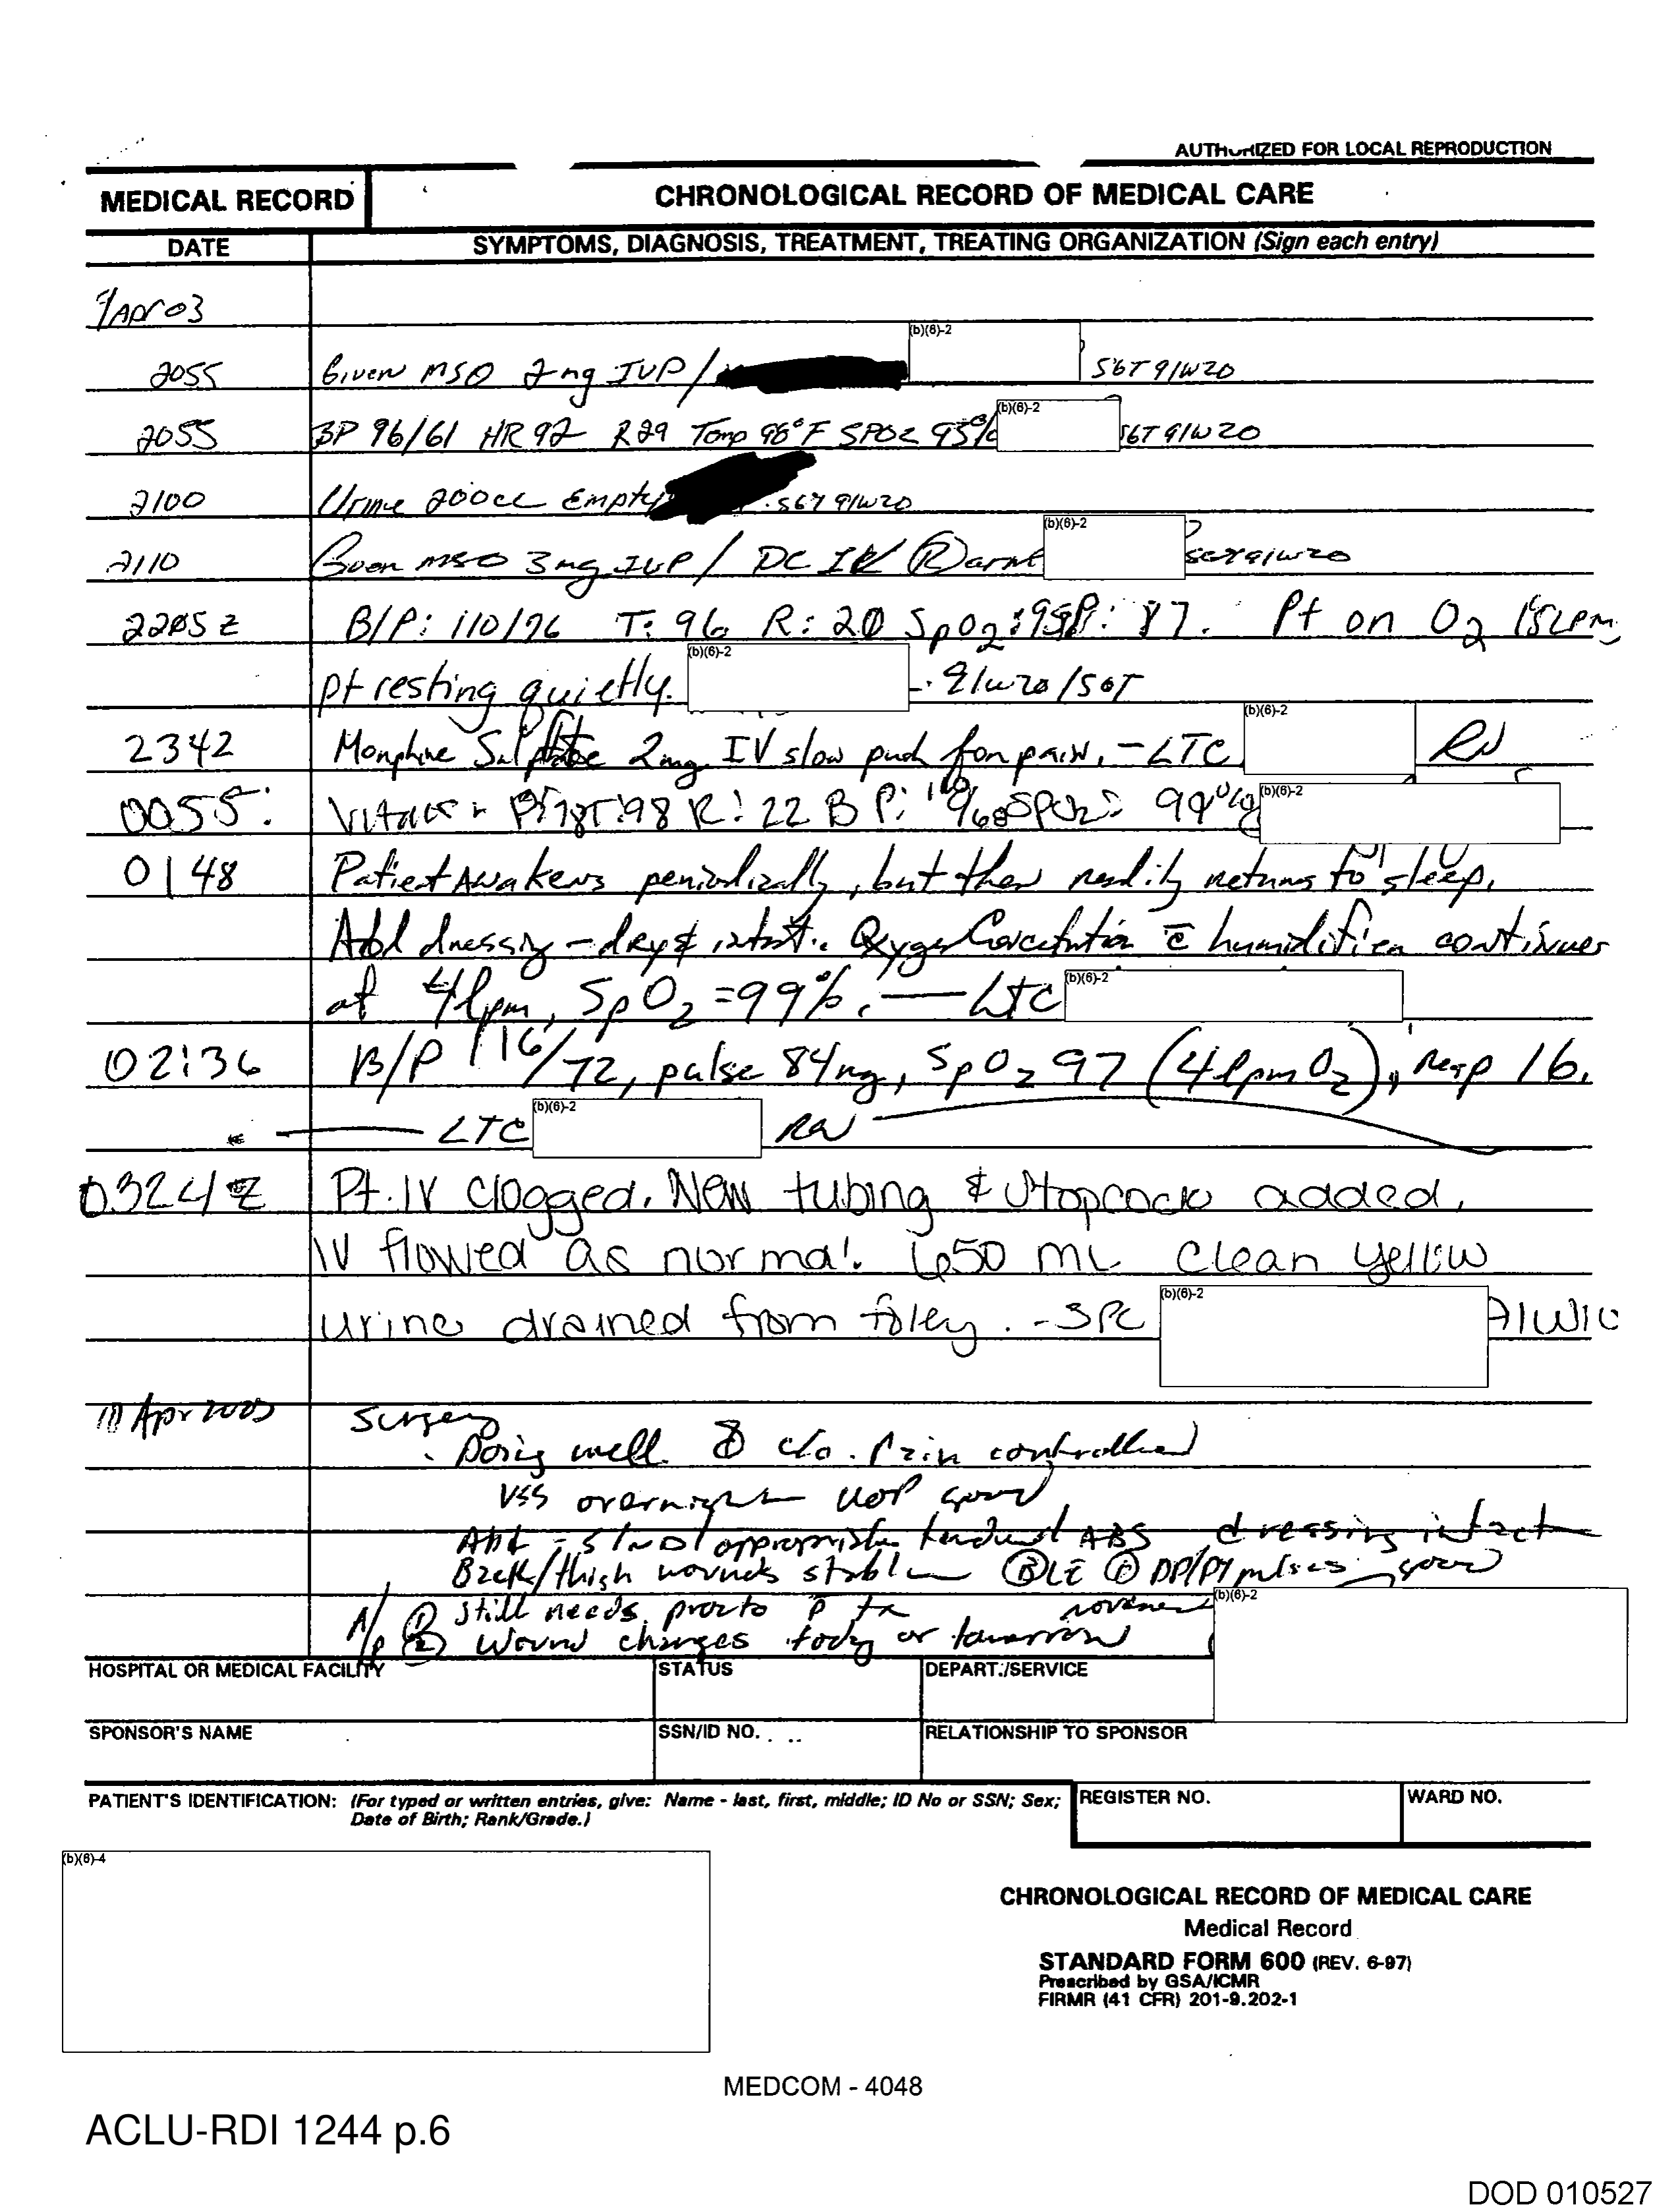 AUTHORIZED FOR LOCAL REPRODUCTION
MEDICAL RECORD
CHRONOLOGICAL RECORD OF MEDICAL CARE
DATE
SYMPTOMS, DIAGNOSIS, TREATMENT, TREATING ORGANIZATION (Sign each entry)
9 Apr 03
2055 Given MSO 2mg IVP / (b)(6)-2 SGT 91W20
2055 BP 96/61 HR 92 R29 Temp 98°F SPO2 95% (b)(6)-2 SGT 91W20
2100 Urine 200cc Empty SGT 91W20
2110 Given MSO 3mg IVP / DC IV Ⓡ arm (b)(6)-2 SGT 91W20
2205z B/P: 110/76 T: 96 R: 20 SpO2: P: 87. Pt on O2 15LPM
pt resting quietly. (b)(6)-2 91W20/SGT
2342 Morphine Sulfate 2mg IV slow push for pain. - LTC (b)(6)-2 RN
0055: Vitals: T:98 R: 22 BP: SPO2: 99% (b)(6)-2
0148 Patient awakens periodically, but then readily returns to sleep.
Abd dressing - dry & intact. Oxygen c̄ humidifier continues
at 4lpm, SpO2 = 99%. — LTC (b)(6)-2
02:36 B/P 116/72, pulse 84 reg, SpO2 97 (4lpm O2), resp 16.
— LTC (b)(6)-2 RN
0324z Pt. IV clogged. New tubing & stopcock added.
IV flowed as normal. 650 mL clean yellow
urine drained from foley. - SPC (b)(6)-2 91W10
10 Apr 2003 Surgery
Doing well. c/o. Pain controlled
VSS overnight UOP good
Abd - S/ND/appropriately tender/ dressing intact
Back/thigh wounds stable Ⓑ LE ⊕ DP/PT pulses good
A/P ① still needs procto p̄ tx (b)(6)-2
② Wound changes today or tomorrow
HOSPITAL OR MEDICAL FACILITY
STATUS
DEPART./SERVICE
SPONSOR'S NAME
SSN/ID NO.
RELATIONSHIP TO SPONSOR
PATIENT'S IDENTIFICATION: (For typed or written entries, give: Name - last, first, middle; ID No or SSN; Sex;
Date of Birth; Rank/Grade.)
REGISTER NO.
WARD NO.
(b)(6)-4
CHRONOLOGICAL RECORD OF MEDICAL CARE
Medical Record
STANDARD FORM 600 (REV. 6-97)
Prescribed by GSA/ICMR
FIRMR (41 CFR) 201-9.202-1
MEDCOM - 4048
ACLU-RDI 1244 p.6
DOD 010527